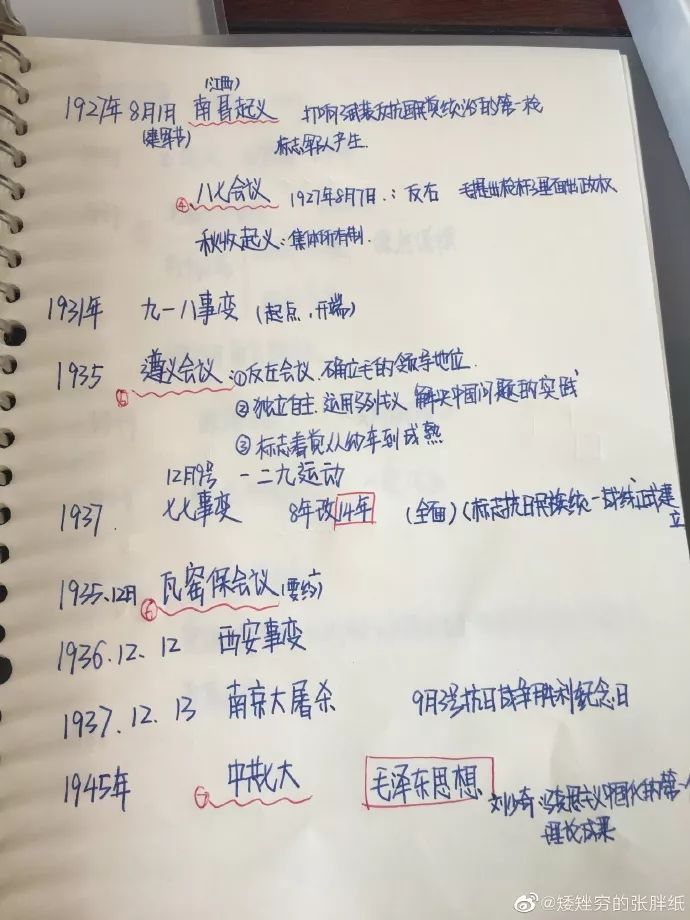 (江西)
1927年8月1日 南昌起义 打响武装反抗国民党统治的第一枪
(建军节) 标志军队产生.
④ 八七会议 1927年8月7日.: 反右 毛提出枪杆子里面出政权
秋收起义: 集体所有制.
1931年 九一八事变 (起点.开端)
1935 遵义会议: ①反左会议.确立毛的领导地位.
⑤ ②独立自主.运用马列主义 解决中国问题的实践
③标志着党从幼年到成熟
12月9号 一二九运动
1937. 七七事变 8年改14年 (全面)(标志抗日民族统一战线正式建立
1935.12月 ⑥ 瓦窑保会议(要考)
1936.12.12 西安事变
1937.12.13 南京大屠杀 9月3号抗日战争胜利纪念日
1945年 ⑦ 中共七大 毛泽东思想 刘少奇:马克思主义中国化的第一
理论成果
@矮矬穷的张胖纸